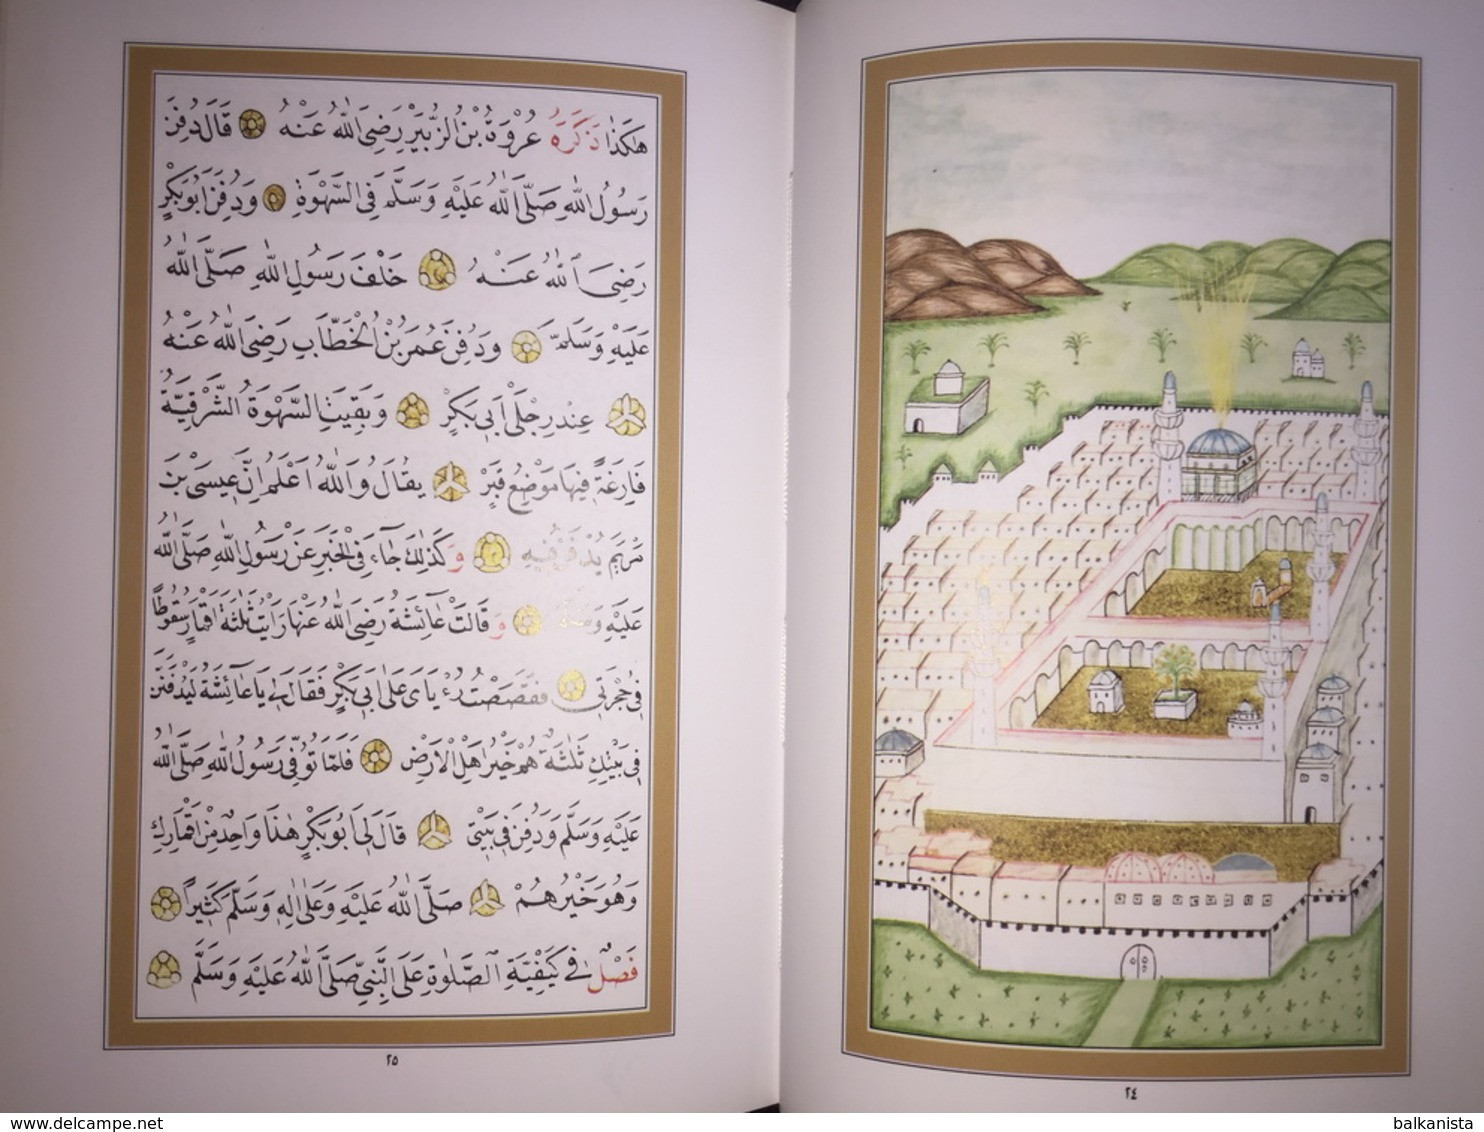 هٰكَذَا ذَكَرَهُ عُرْوَةُ بْنُ الزُّبَيْرِ رَضِيَ اللّٰهُ عَنْهُ قَالَ دُفِنَ
رَسُولُ اللّٰهِ صَلَّى اللّٰهُ عَلَيْهِ وَسَلَّمَ فِي السَّهْوَةِ وَدُفِنَ اَبُو بَكْرٍ
رَضِيَ اللّٰهُ عَنْهُ خَلْفَ رَسُولِ اللّٰهِ صَلَّى اللّٰهُ
عَلَيْهِ وَسَلَّمَ وَدُفِنَ عُمَرُ بْنُ الْخَطَّابِ رَضِيَ اللّٰهُ عَنْهُ
عِنْدَ رِجْلَيْ اَبِي بَكْرٍ وَبَقِيَتِ السَّهْوَةُ الشَّرْقِيَّةُ
فَارِغَةً فِيهَا مَوْضِعُ قَبْرٍ يُقَالُ وَاللّٰهُ اَعْلَمُ اِنَّ عِيسَى بْنَ
مَرْيَمَ يُدْفَنُ فِيهِ وَكَذٰلِكَ جَاءَ فِي الْخَبَرِ عَنْ رَسُولِ اللّٰهِ صَلَّى اللّٰهُ
عَلَيْهِ وَسَلَّمَ وَقَالَتْ عَائِشَةُ رَضِيَ اللّٰهُ عَنْهَا رَاَيْتُ ثَلٰثَةَ اَقْمَارٍ سُقُوطًا
فِي حُجْرَتِي فَقَصَصْتُ رُءْيَايَ عَلَى اَبِي بَكْرٍ فَقَالَ لِي يَا عَائِشَةُ لَيُدْفَنَنَّ
فِي بَيْتِكِ ثَلٰثَةٌ هُمْ خَيْرُ اَهْلِ الْاَرْضِ فَلَمَّا تُوُفِّيَ رَسُولُ اللّٰهِ صَلَّى اللّٰهُ
عَلَيْهِ وَسَلَّمَ وَدُفِنَ فِي بَيْتِي قَالَ لِي اَبُو بَكْرٍ هٰذَا وَاحِدٌ مِنْ اَقْمَارِكِ
وَهُوَ خَيْرُهُمْ صَلَّى اللّٰهُ عَلَيْهِ وَعَلٰى اٰلِهِ وَسَلَّمَ كَثِيرًا
فَصْلٌ فِي كَيْفِيَّةِ الصَّلٰوةِ عَلَى النَّبِيِّ صَلَّى اللّٰهُ عَلَيْهِ وَسَلَّمَ
٢٥
٢٤
www.delcampe.net
balkanista